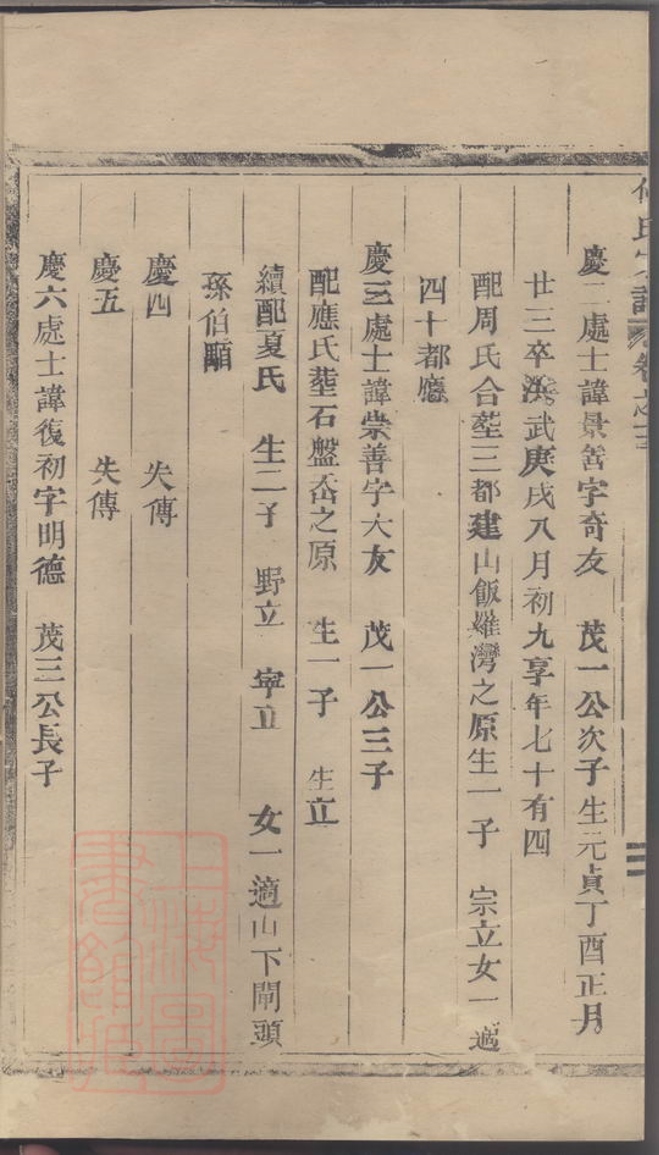 氏宗譜 卷之三
慶二處士諱景善字奇友 茂一公次子生元貞丁酉正月
廿三卒洪武庚戌八月初九享年七十有四
配周氏合塟三都建山飯羅灣之原生一子 宗立女一適
四十都應
慶三處士諱崇善字大友 茂一公三子
配應氏塟石盤岙之原 生一子 生立
續配夏氏 生二子 野立 寧立 女一適山下閘頭
孫伯顒
慶四 失傳
慶五 失傳
慶六處士諱復初字明德 茂三公長子
上海圖書館藏